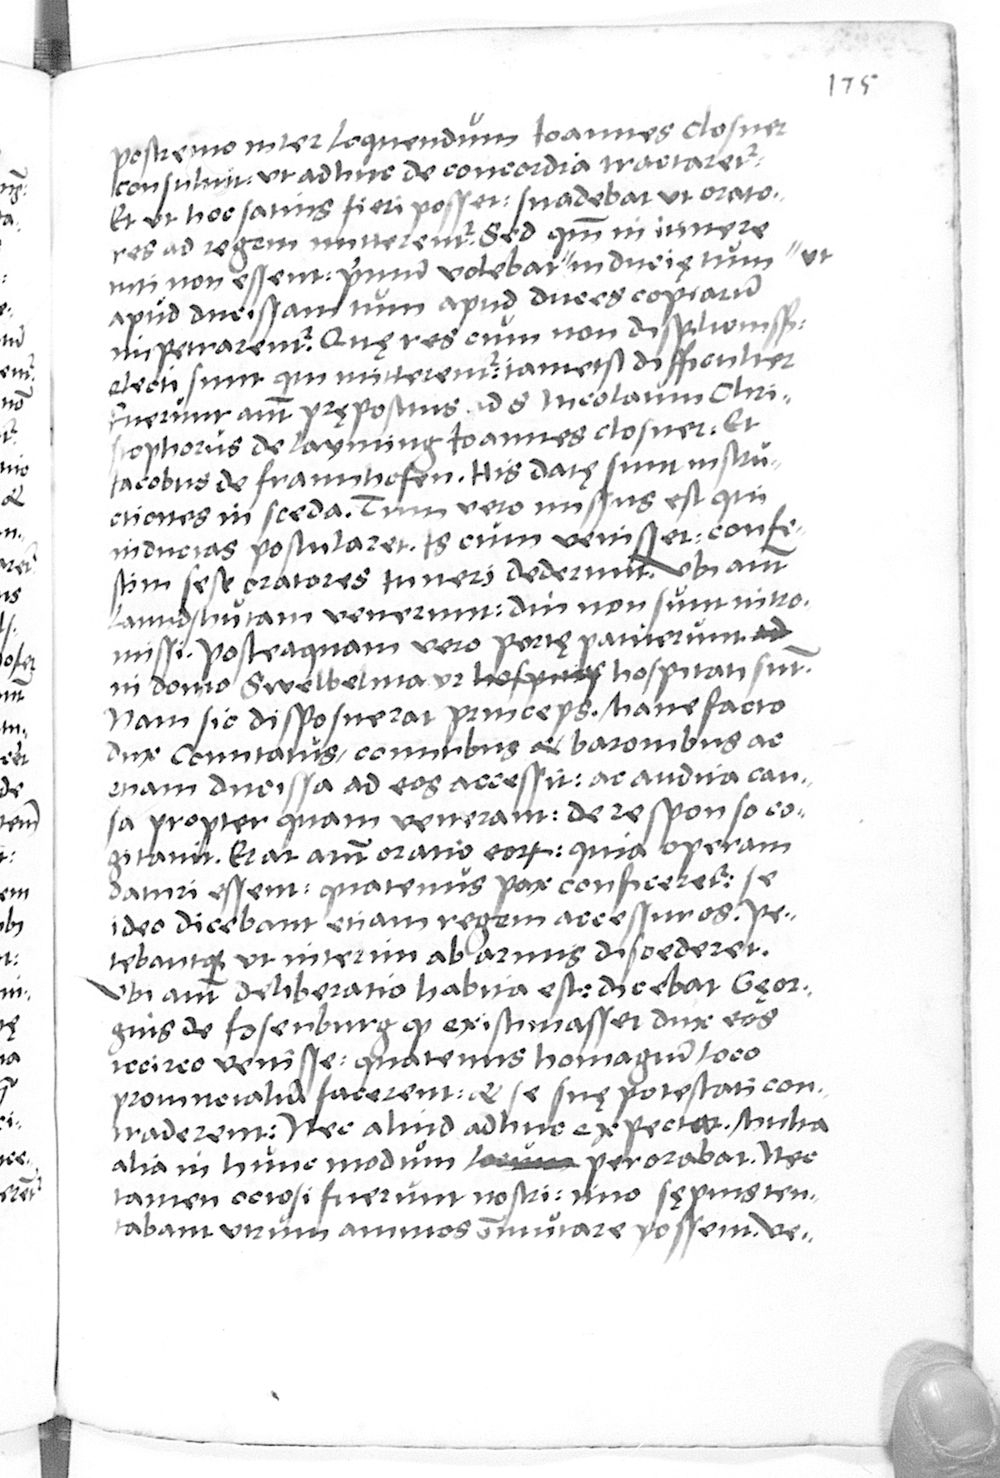 175
postremo inter loquendum Ioannes closner
consuluit: ut adhuc de concordia tractaretr̃:
Et ut hoc satius fieri posset: suadebat ut orato„
res ad regem mitterentr̃. Sed qm̃ in itinere
tuti non essent: primũ volebat "induciẹ tum "ut
apud ducissam tum apud duces copiarũ
impetrarentr̃. Quẹ res cum non
electi sunt qui mitterentr̃: tametsi difficulter
Fuerunt aut̃ prẹpositus ad S Nicolaum Chri„
stophorus de layming Ioannes closner: Et
Iacobus de fraunhofen. His datẹ sunt instru„
ctiones in sceda. Tum vero missus est qui
inducias postularet. Is cum venisset: confe„
stim sese oratores itineri dederunt. Ubi aut̃
Lanndshutam venerunt: diu non sunt intro„
missi. Posteaquam vero portẹ patuerunt ad
in domo ur hospitati sũt.
Nam sic disposuerat princeps. Mane facto
dux comitatus, comitibus & baronibus ac
etiam ducissa ad eos accessit: ac audita cau„
sa propter quam venerant: de responso co„
gitavit. Erat aut̃ oratio eoꝝ: quia operam
daturi essent: quatenus pax conficeretr̃: se
ideo dicebant etiam regem accessuros. Pe„
tebantqꝫ ut interim ab armis discederet.
Ubi aut̃ deliberatio habita est: dicebat Gẹor„
gius de rosenburg ꝙ existimasset dux eos
iccirco venisse: quatenus homagiũ loco
provincialiũ facerent: & se suẹ potestati con„
traderent: Nec aliud adhuc expectet. Multa
alia in hunc modum perorabat. Nec
tamen ociosi fuerunt nostri: imo sẹpius ten„
tabant utrum animos õmutare possent. Ve„